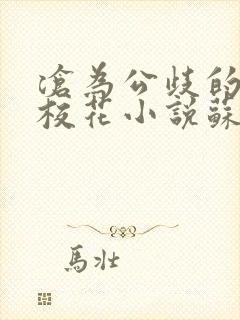 滄為公歧的
校花小說蘇
馬壯